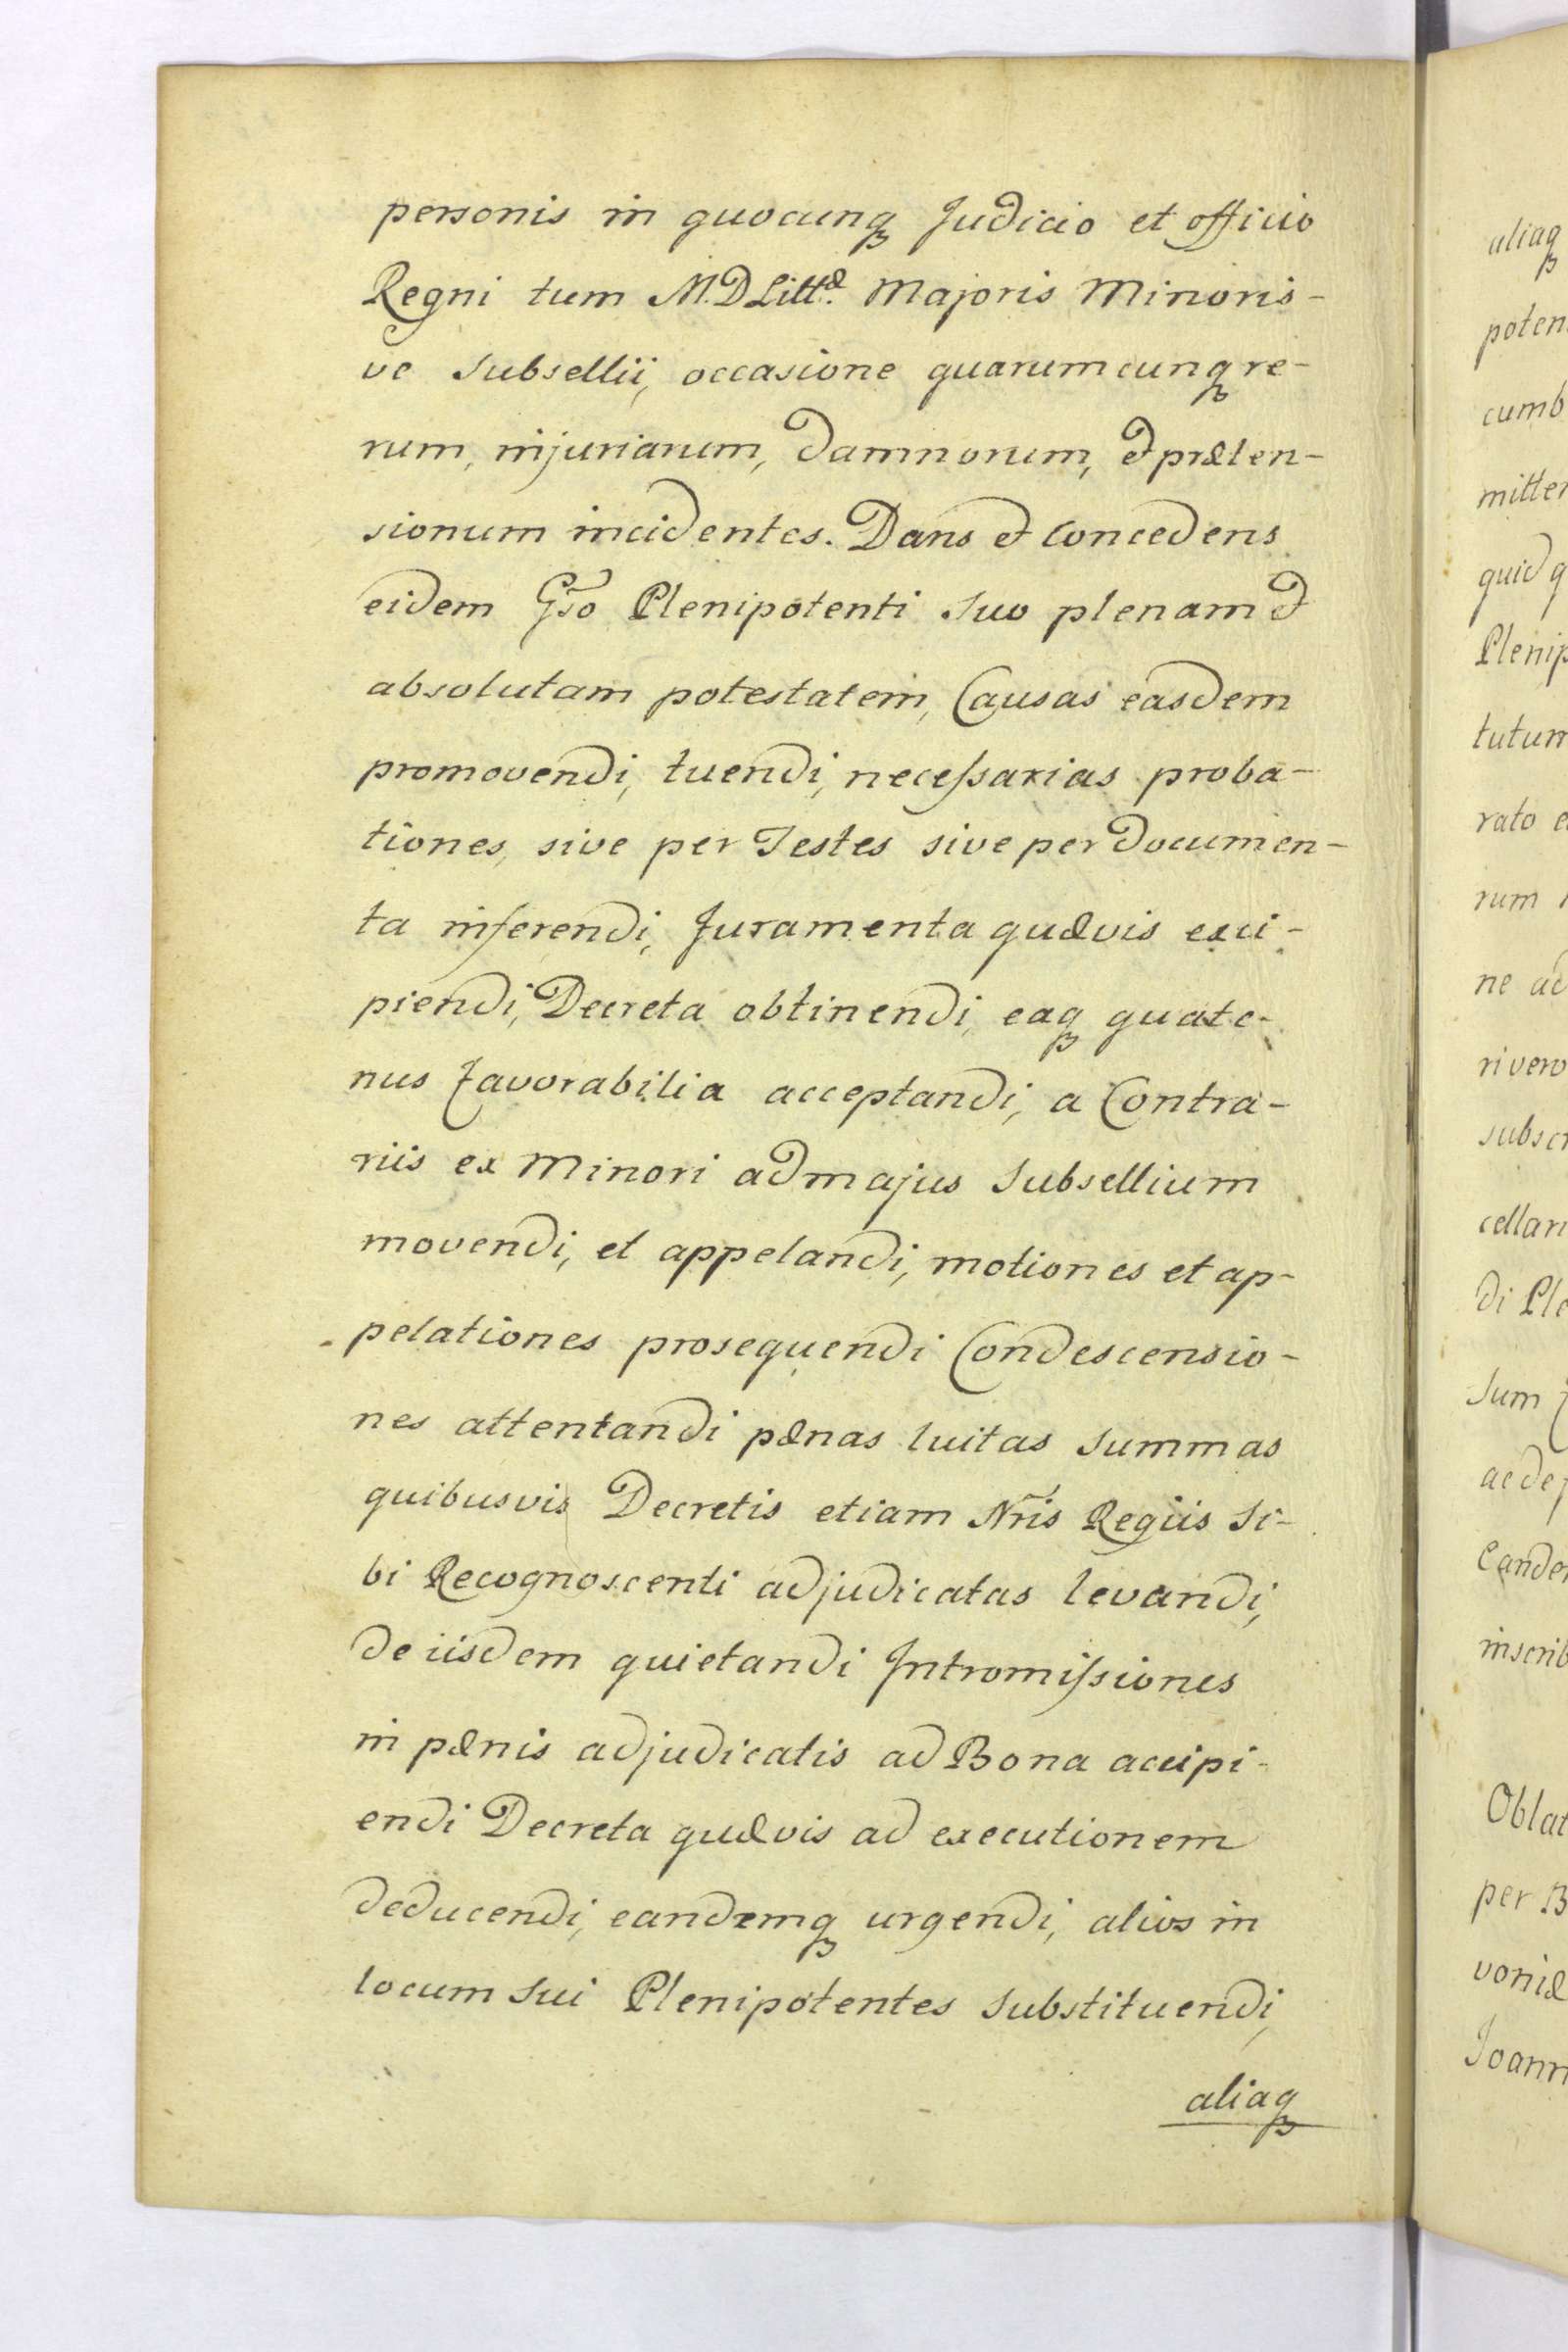 personis in quocunqꝫ Judicio et officio
Regni tum M.D Littæ. Majoris Minoris-
ve Subsellii, occasione quarumcunqꝫ re-
rum, injuriarum, damnorum, et præten-
sionum incidentes. Dans et Concedens
eidem Gso Plenipotenti Suo plenam et
absolutam potestatem, Causas easdem
promovendi, tuendi, necessarias proba-
tiones, sive per Testes sive per Documen-
ta inferendi, Juramenta quævis exci-
piendi, Decreta obtinendi, eaqꝫ quate-
nus favorabilia acceptandi, a Contra-
riis ex Minori ad majus Subsellium
movendi, et appelandi, motiones et ap-
pelationes prosequendi Condescensio-
nes attentandi pænas luitas Summas
quibusvis Decretis etiam Nris Regiis Si-
bi Recognoscenti adjudicatas levandi,
de iisdem quietandi Intromissiones
in pænis adjudicatis ad Bona accipi-
endi Decreta quævis ad executionem
deducendi, eandemqꝫ urgendi, alios in
locum Sui Plenipotentes Substituendi,
aliaqꝫ
aliaqꝫ
poten
cumb
mitter
quid q
Plenip
tutum
rato e
rum
ne ad
ri vero
subscr
cellari
di Ple
Sum
ac de
Eander
inscrib
Oblat
per B
voniæ
Joann